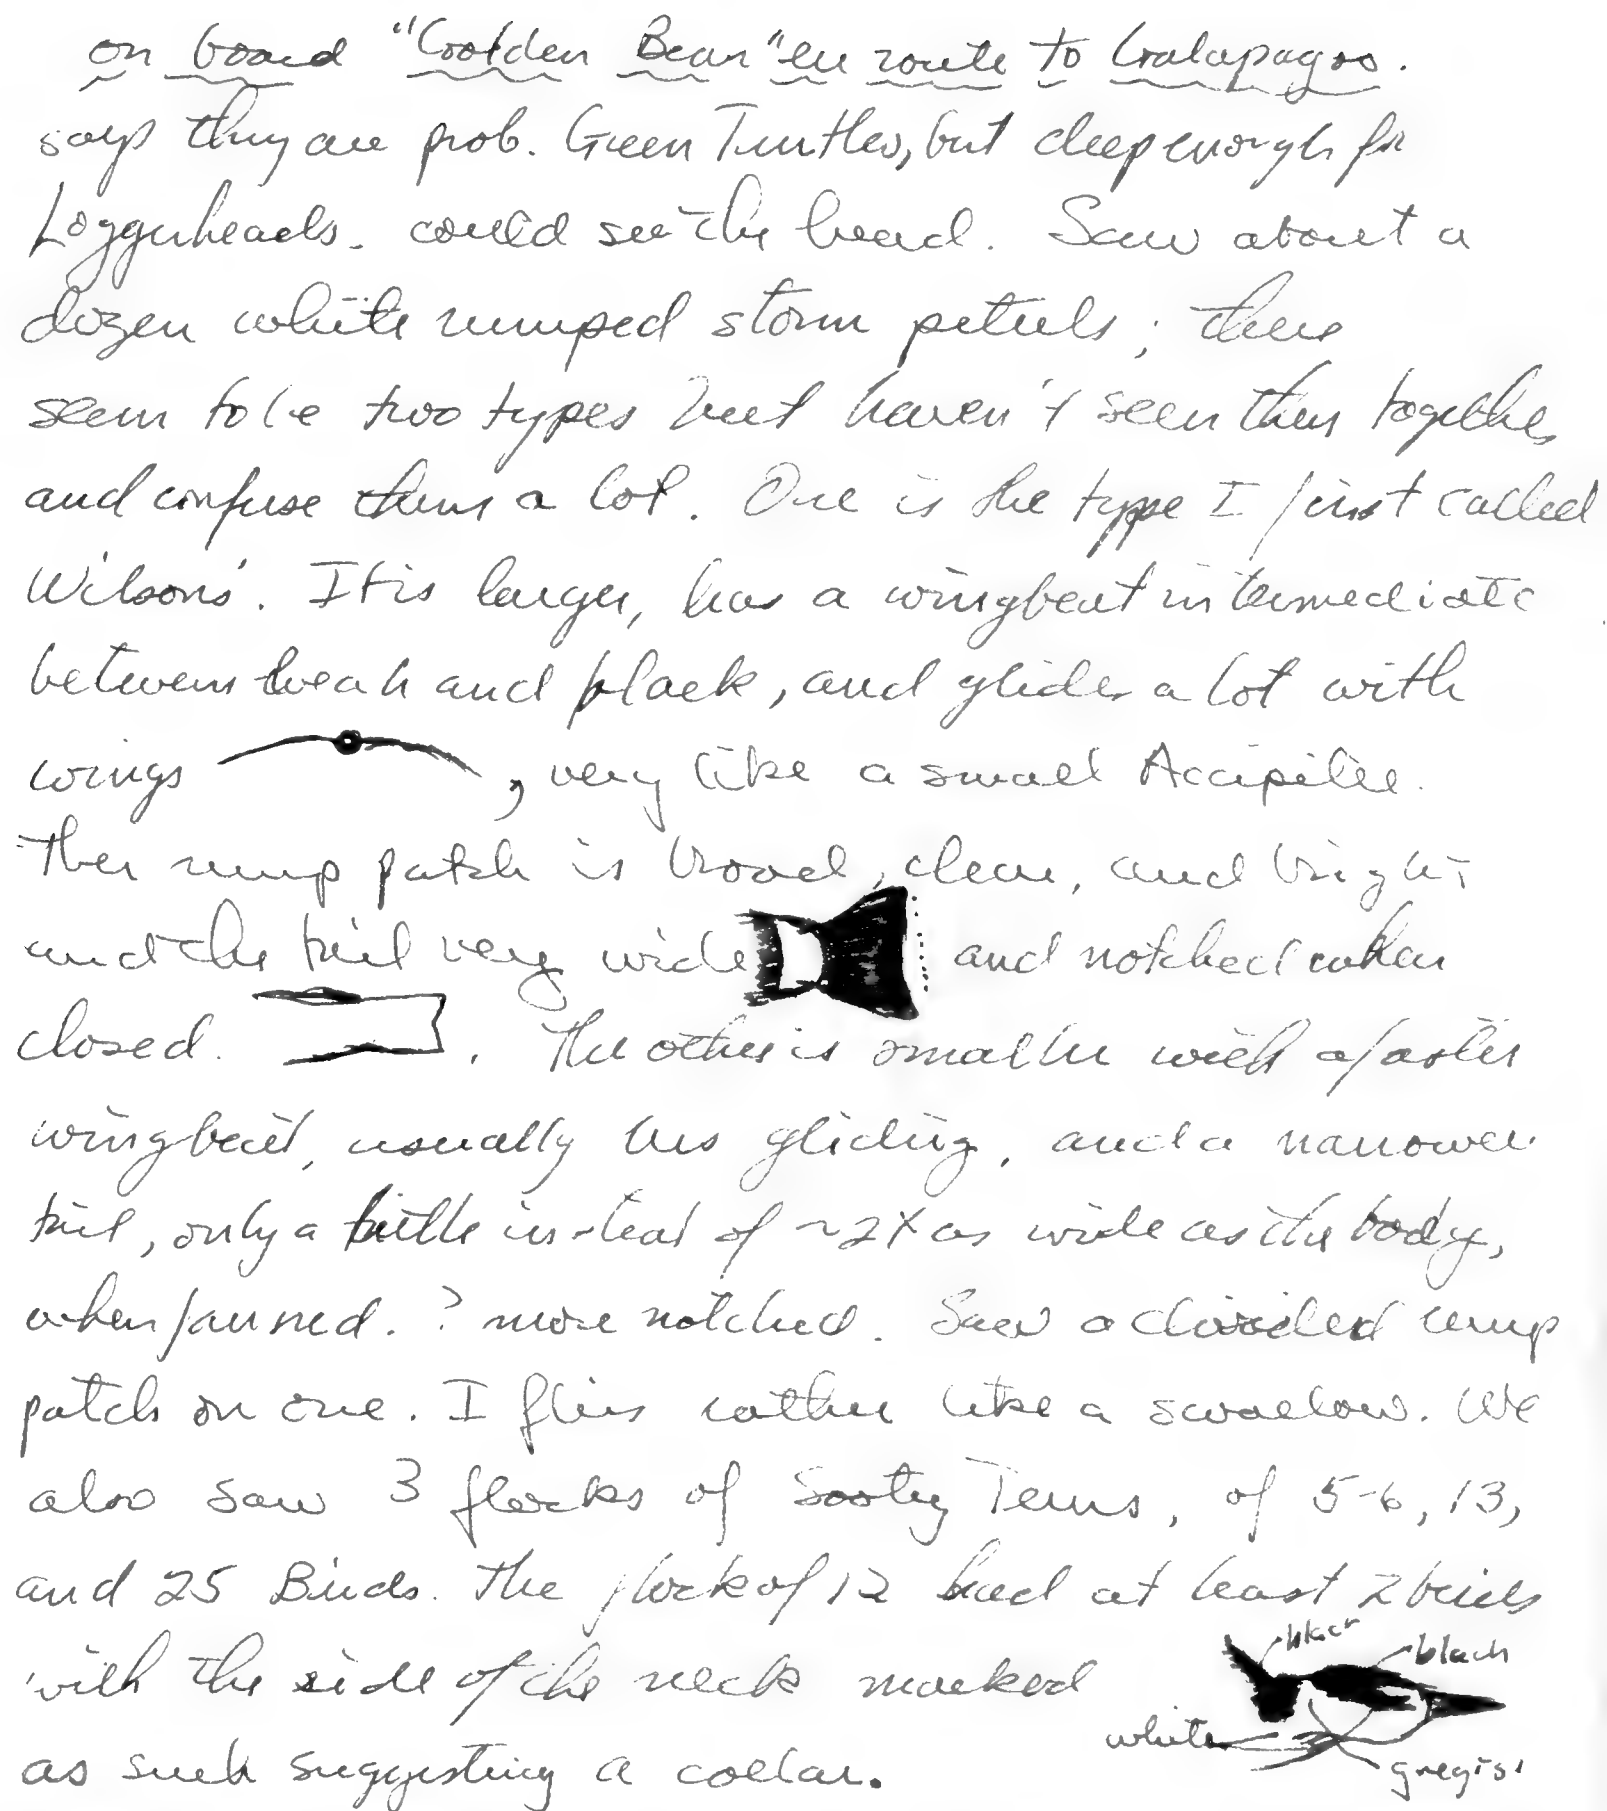 on board "Golden Bear" en route to Galapagos.
says they are prob. Green Turtles, but deep enough for
Loggerheads. could see the head. Saw about a
dozen white rumped storm petrels; there
seem to be two types but haven't seen them together
and confuse them a lot. One is the type I first called
Wilsons'. It is larger, has a wingbeat intermediate
between weak and, and glides a lot with
wings , very like a small Accipiter.
Ther rump patch is broad, clear, and bright
and the tail very wide and notched when
closed. . The other is smaller with a faster
wingbeat, usually less gliding, and a narrower
tail, only a little instead of ~2X as wide as the body,
when fanned. ? more notched. Saw a divided rump
patch on one. I flies rather like a swallow. We
also saw 3 flocks of Sooty Terns, of 5-6, 13,
and 25 Birds. The flock of 12 had at least 2 birds
with the side of the neck marked
black
black
as such suggesting a collar.
white
greyish